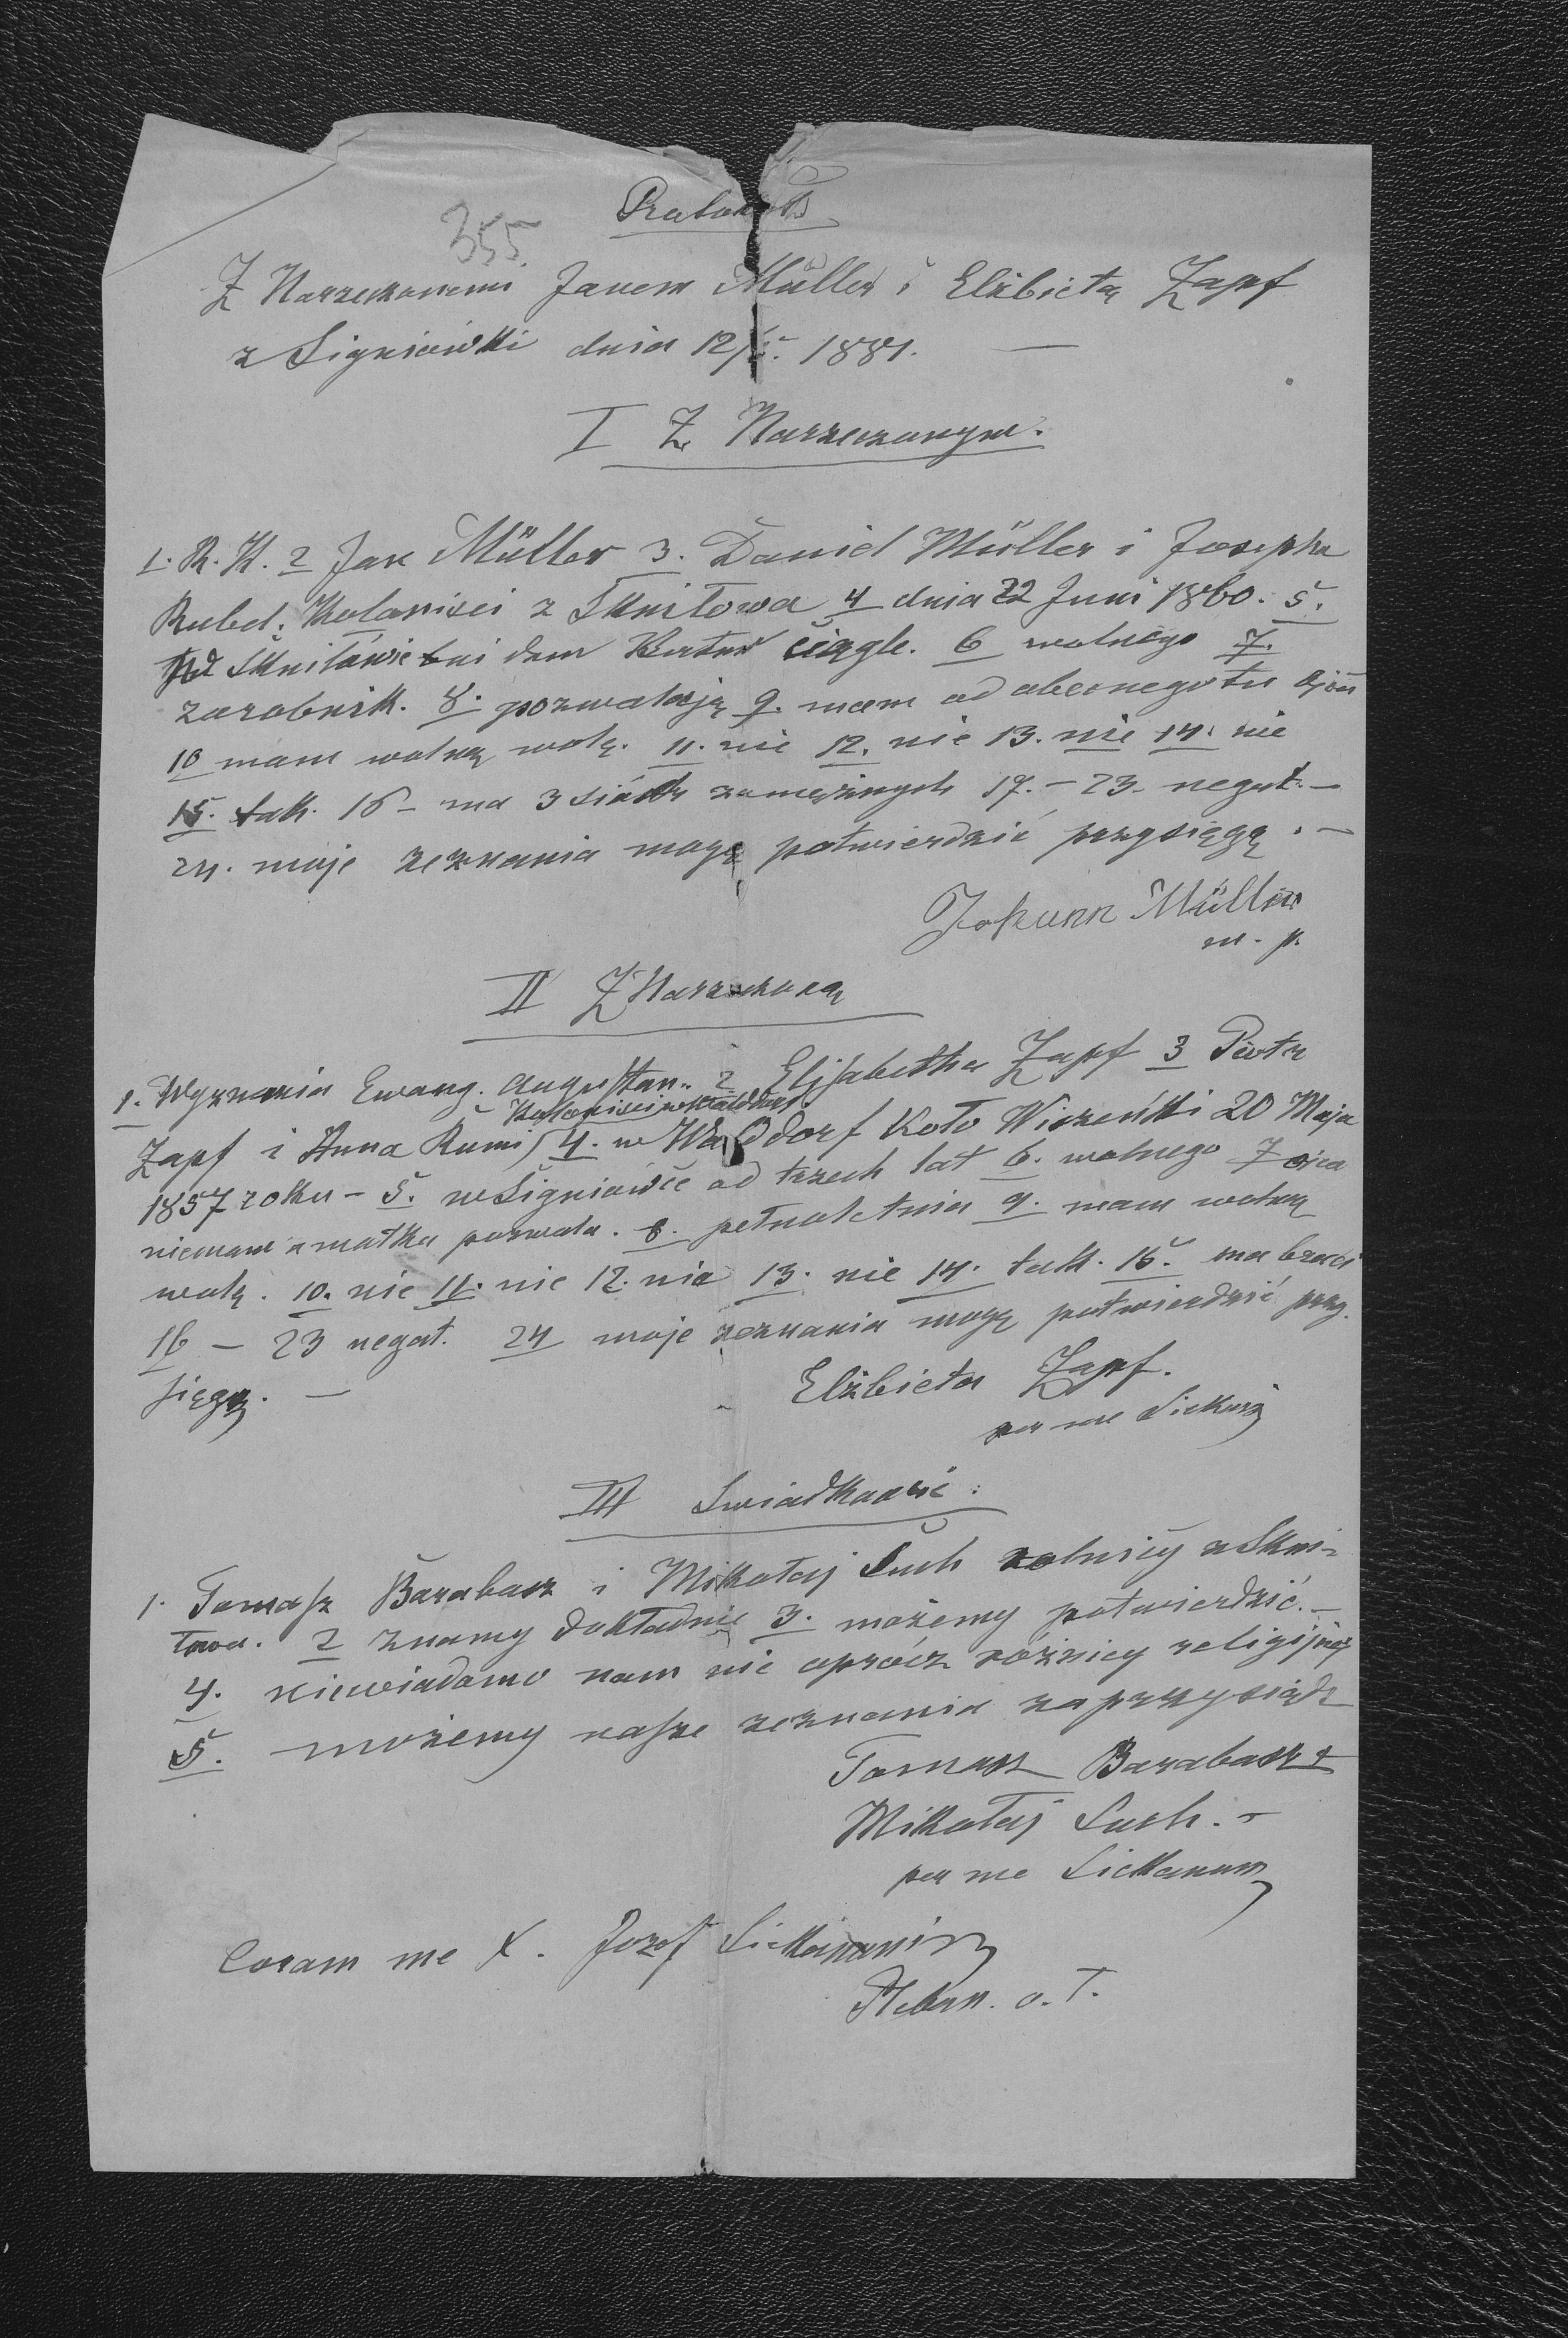 355
Protokół
Z Narzeczonemi Janem Müller i Elżbietą Zapf
z Signiówki dnia 12/5. 1881. —
I Z Narzeczonym.
1. R. K. 2 Jan Müller 3. Daniel Müller i Josepha
Rubel. Kolonisci z Sknitowa 4 dnia 22 Juni 1860. 5.
Sknitówie dom ciągle. 6 wolnego 7.
zarobnik. 8. pozwalają 9. mam od obecnego tu ojca
10 mam wolną wolę. 11. nie 12. nie 13. nie 14. nie
15. tak. 16 – ma 3 zamężnych 17. – 23. negat. –
24. moje zeznania mogę potwierdzić przysięgą. –
Johann Müller
m. p.
II Z Narzeczoną
1. Wyznania Ewang. Augustan. 2 Elisabetha Zapf 3 Piotr
Kolonisci w Walddorf
Zapf i Anna Rumi 4. w Walddorf koło Wiszeńki 20 Maja
1857 roku – 5. w Signiówce od trzech lat 6. wolnego 7 ojca
niemam a matka pozwala. 8. pełnoletnia 9. mam wolną
wolę. 10. nie 11. nie 12. nie 13. nie 14. tak. 15. ma braci
16 – 23 negat. 24 moje zeznania mogę potwierdzić przy-
sięgą. —
Elżbieta Zapf.
per me
III Swiadkowie.
1. Tomasz Barabasz i Mikołaj Such rolnicy z Skni-
towa. 2 znamy dokładnie 3. możemy potwierdzić. –
4. niewiadomo nam nic oprócz różnicy religijnej
5. możemy nasze zeznania zaprzysiądz
Tomasz Barabasz +
Mikołaj Such. +
per me
Coram me X. Jozef
Pleban. o. T.